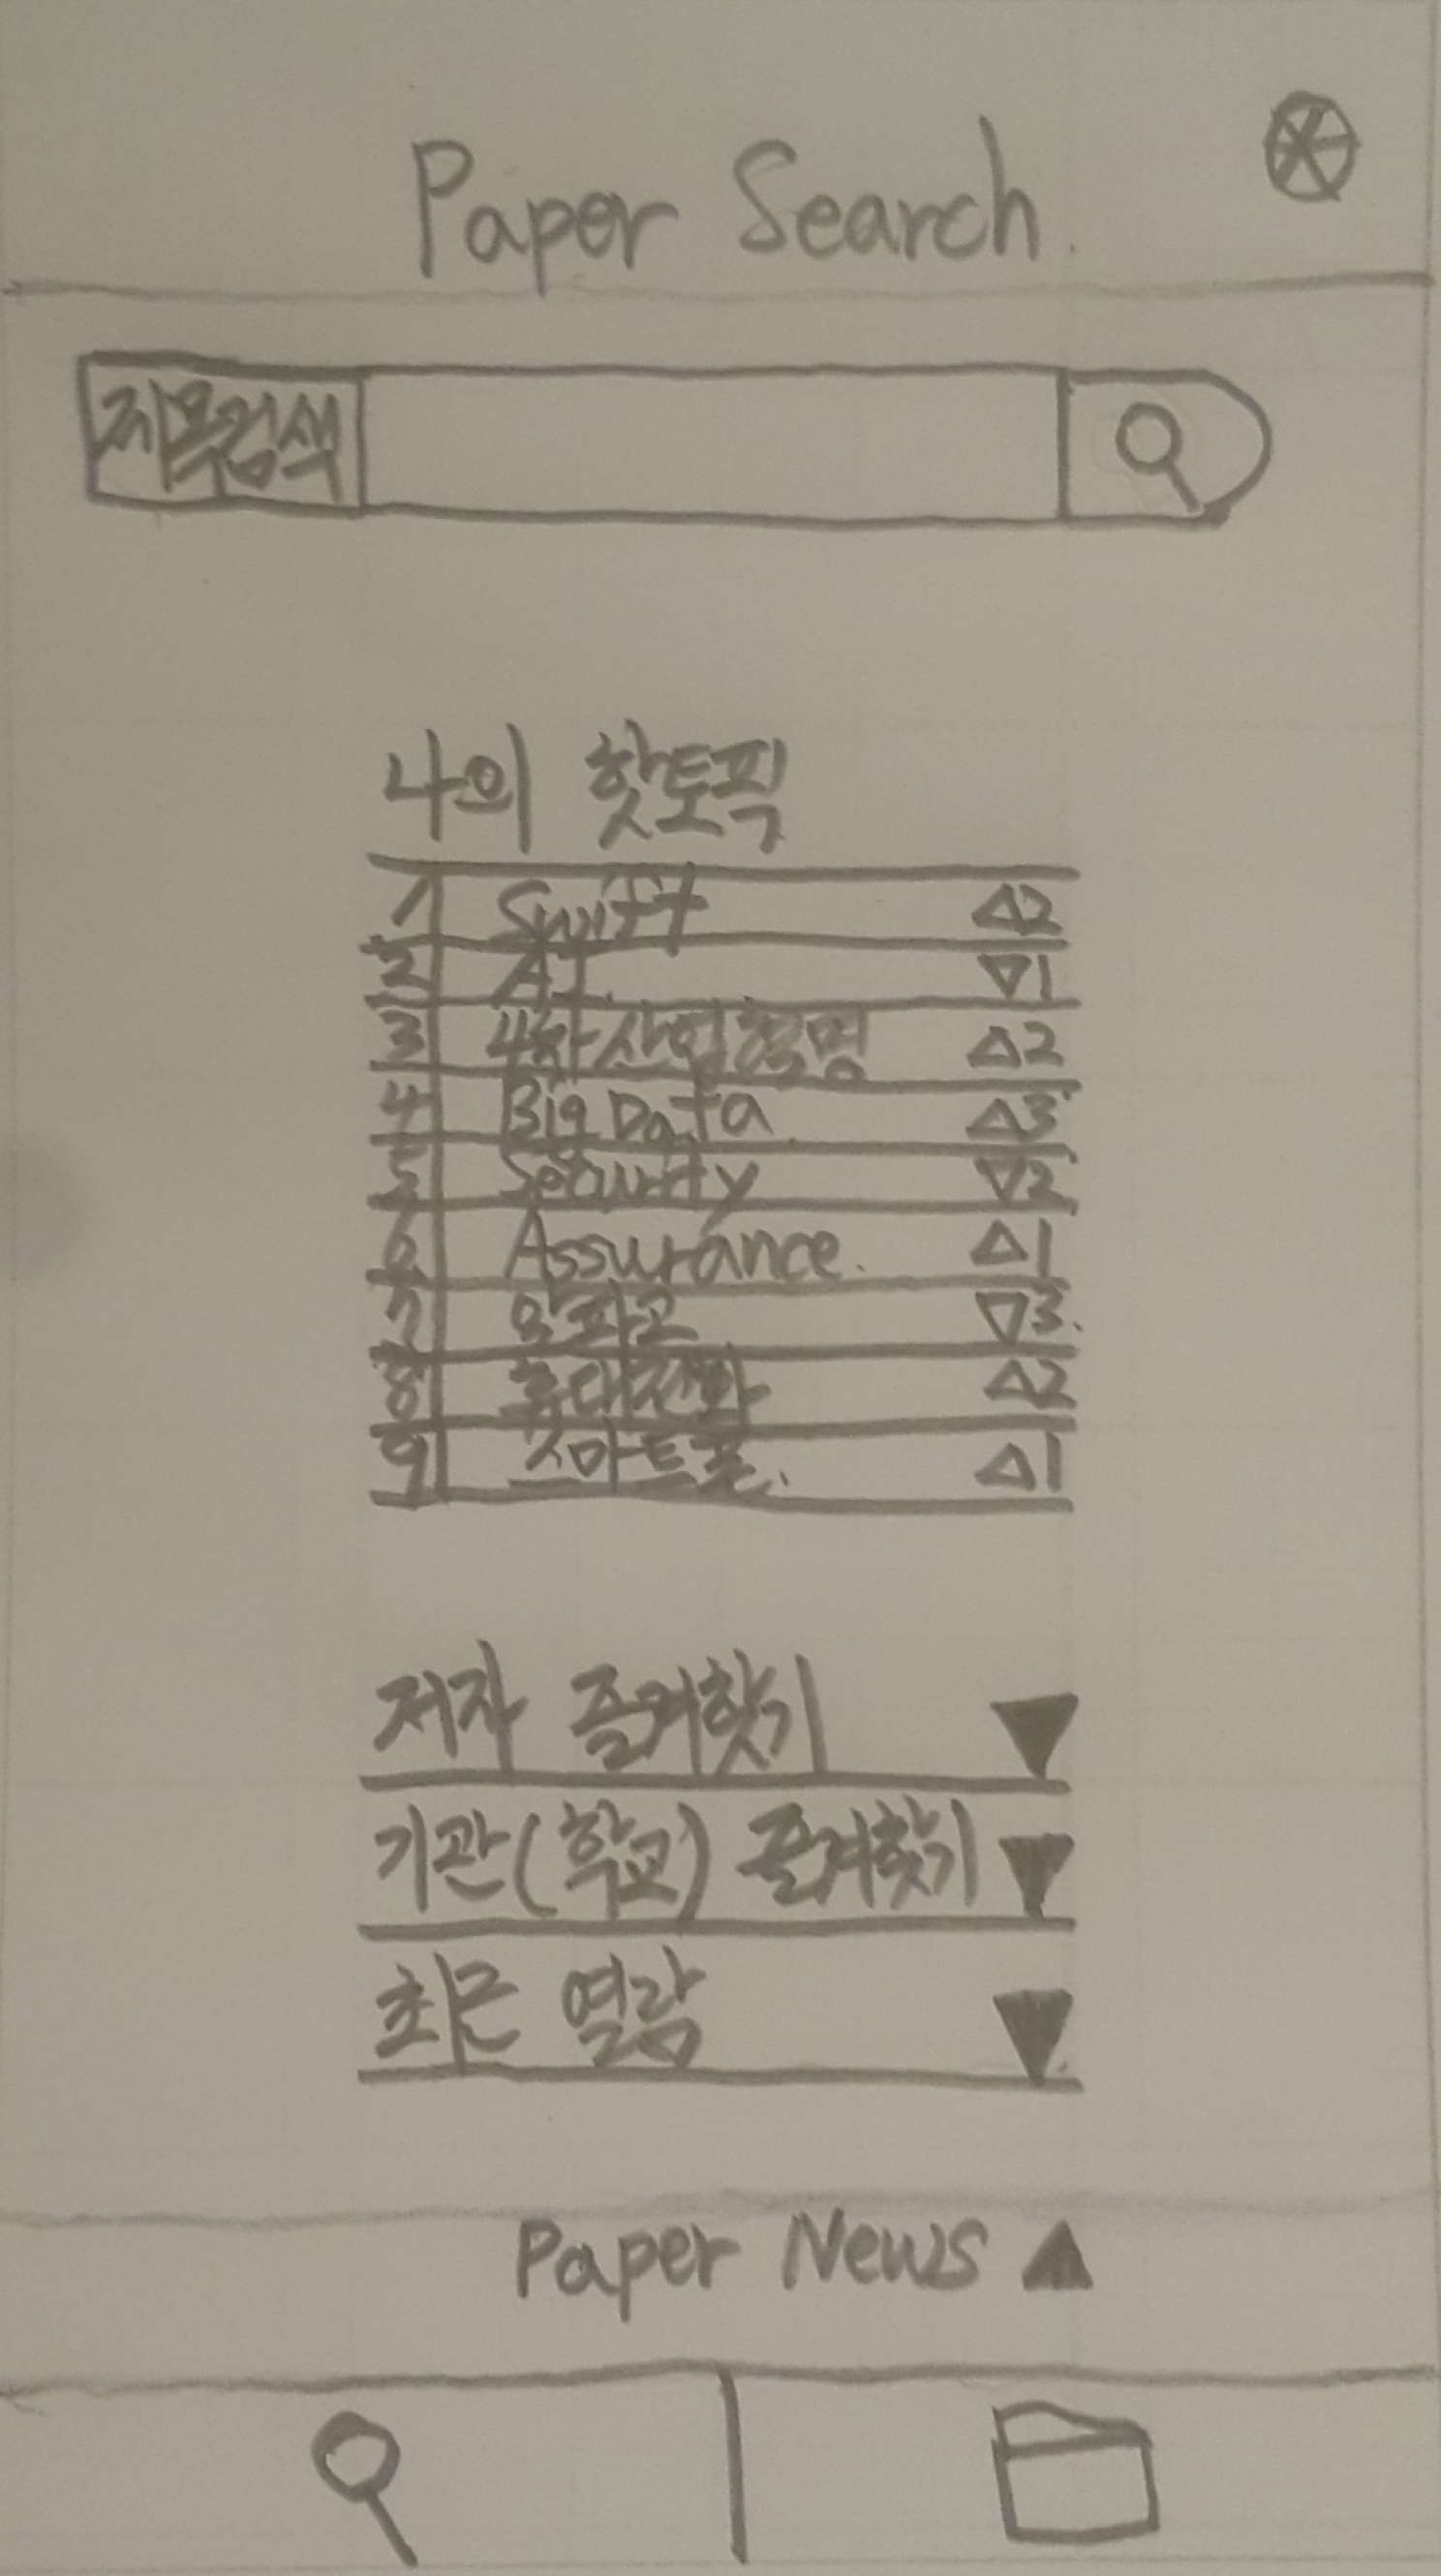 Paper Search
제목검색
나의 핫토픽
1 Swift △2
2 AI ▽1
3 4차산업혁명 △2
4 Big Data △3
5 Security ▽2
6 Assurance. △1
7 알파고 ▽3.
8 휴대전화 △2
9 스마트폰. △1
저자 즐겨찾기 ▼
기관(학교) 즐겨찾기 ▼
최근 열람 ▼
Paper News ▲